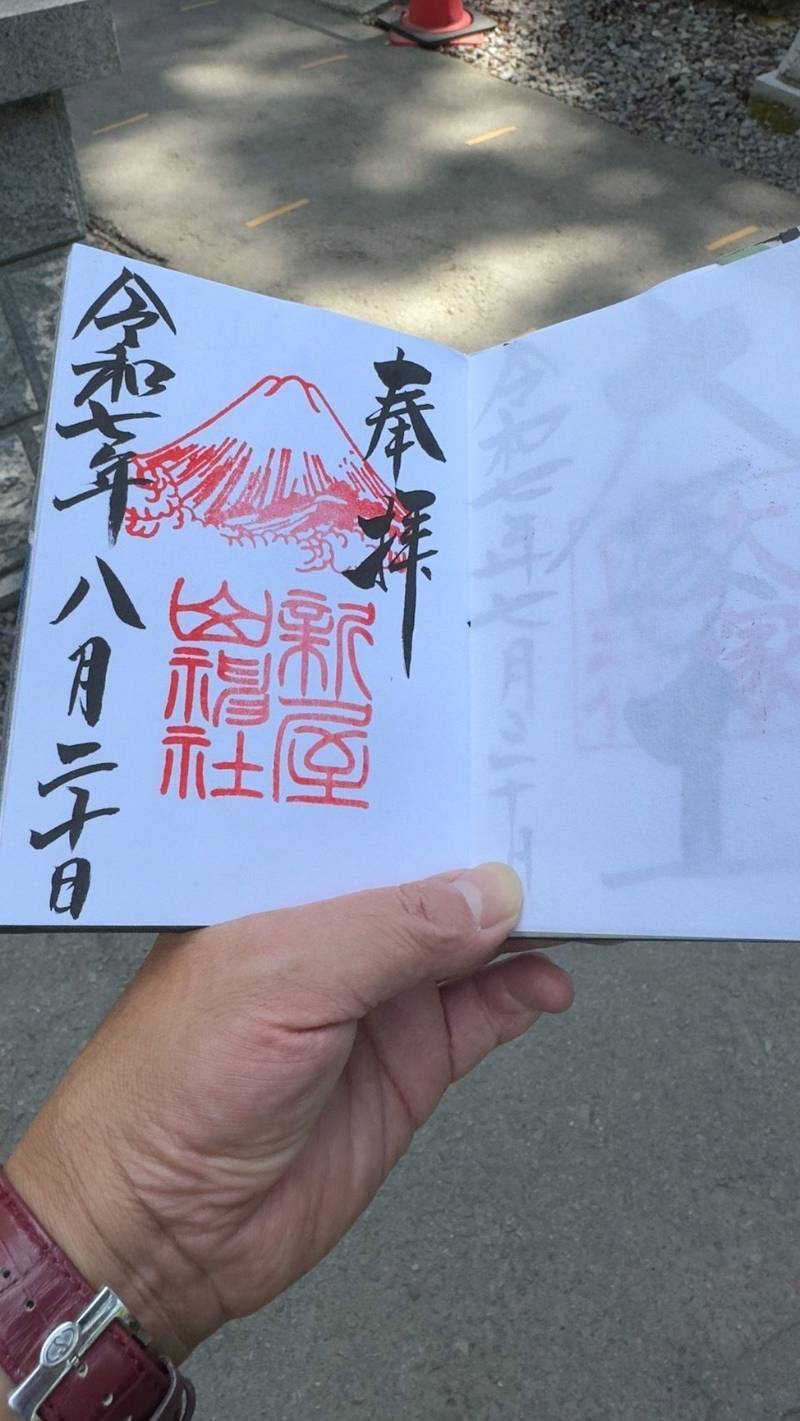 令和七年七月
奉拝
新屋
山神社
令和七年八月二十日